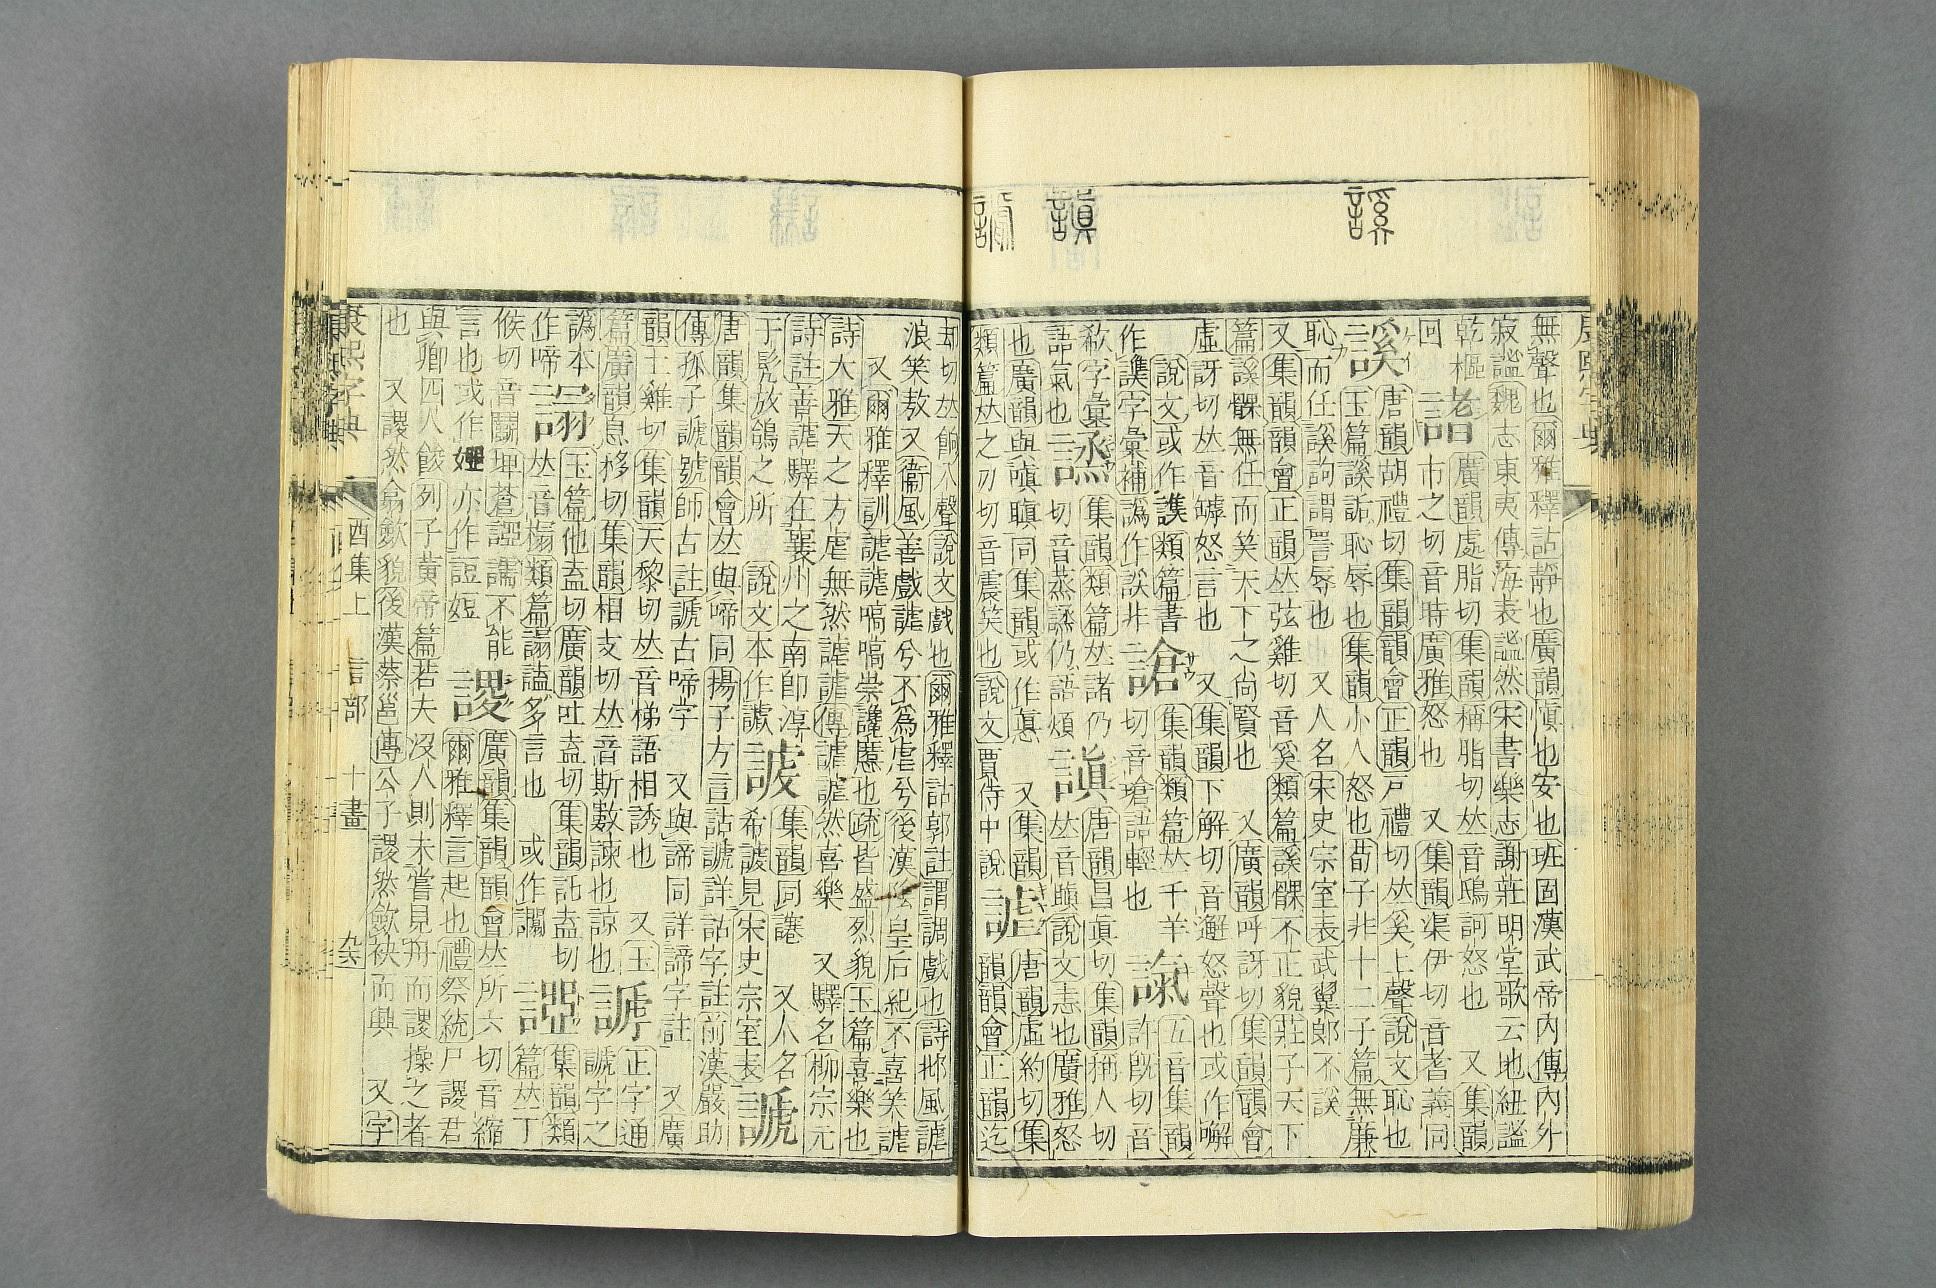 謑
謓
謔
無聲也爾雅釋詁靜也廣韻愼也安也班固漢武帝內傳內外
寂謐魏志東夷傳海表謐然宋書樂志謝莊明堂歌云地紐謐
乾樞
回
廣韻處脂切集韻稱脂切𠀤音鴟訶怒也 又集韻
市之切音時廣雅怒也 又集韻渠伊切音耆義同
謑
唐韻胡禮切集韻韻會正韻戸禮切𠀤奚上聲說文恥也
玉篇謑詬恥辱也集韻小人怒也荀子非十二子篇無廉
恥而任謑訽謂詈辱也 又人名宋史宗室表武翼郎不謑
又集韻韻會正韻𠀤弦雞切音奚類篇謑髁不正貌莊子天下
篇謑髁無任而笑天下之尚賢也 又廣韻呼訝切集韻韻會
虛訝切𠀤音罅怒言也 又集韻下解切音邂怒聲也或作
說文或作 類篇書
作 字彙補譌作誒非
謒
集韻類篇𠀤千羊
切音瑲語輕也
五音集韻
許旣切音
欷字彙
語氣也
集韻類篇𠀤諸仍
切音蒸 仍語煩
謓
唐韻昌眞切集韻稱人切
𠀤音瞋說文恚也廣雅怒
也廣韻與嗔瞋同集韻或作 又集韻
類篇𠀤之刃切音震笑也說文賈侍中說
謔
唐韻虛約切集
韻韻會正韻迄
却切𠀤餉入聲說文戲也爾雅釋詁郭註謂調戲也詩邶風謔
浪笑敖又衞風善戲謔兮不爲虐兮後漢陰皇后紀不喜笑謔
又爾雅釋訓謔謔謞謞崇讒慝也疏皆盛烈貌玉篇喜樂也
詩大雅天之方虐無然謔謔傳謔謔然喜樂 又驛名柳宗元
詩註善謔驛在襄州之南卽淳
于髡放鵠之所 說文本作
集韻同 又人名
希 見宋史宗室表
謕
唐韻集韻韻會𠀤與啼同揚子方言詀謕詳詀字註前漢嚴助
傳孤子謕號師古註謕古啼字 又與諦同詳諦字註 又廣
韻土雞切集韻天黎切𠀤音梯語相誘也 又玉
篇廣韻息移切集韻相支切𠀤音斯數諫也諒也
正字通
謕字之
譌本
作啼
玉篇他盍切廣韻吐盍切集韻託盍切
𠀤音榻類篇 多言也 或作
集韻類
篇𠀤丁
候切音鬭埤蒼 譳不能
言也或作 亦作
謖
廣韻集韻韻會𠀤所六切音縮
爾雅釋言起也禮祭統尸謖君
與卿四人餕列子黃帝篇若夫沒人則未嘗見舟而謖操之者
也 又謖然翕歛貌後漢蔡邕傳公子謖然歛袂而興 又字
康熙字典 酉集上 言部 十畫